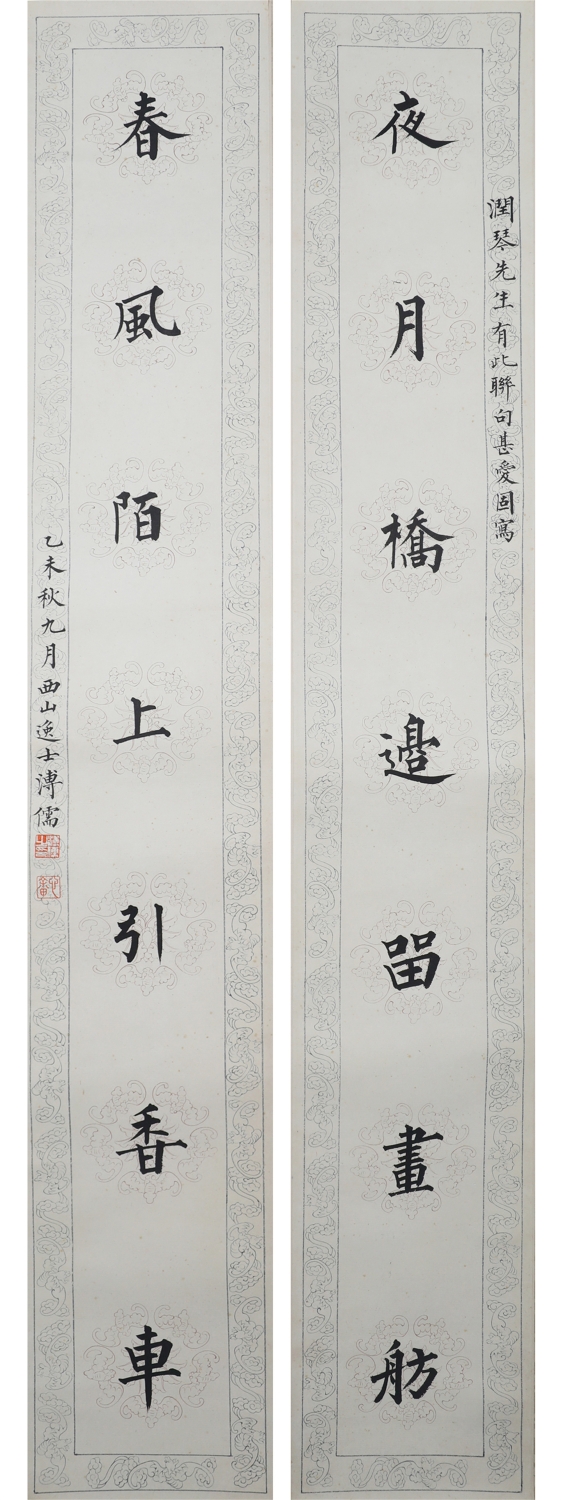 潤琴先生有此聯句甚愛因寫
夜月橋邊畱畫舫
春風陌上引香車
乙未秋九月西山逸士溥儒